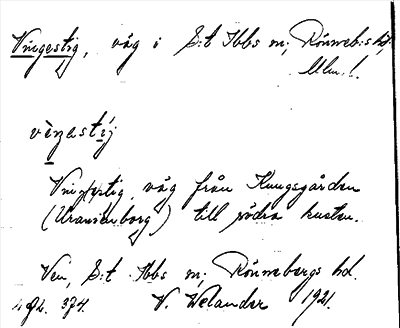 Vingestig, väg i S:t Ibbs sn; Rönneb:s hd.
Mlm. l.
vèŋastíj
Vingestig, väg från Kungsgården
(Uranienborg) till södra kusten.
Ven, S:t Ibbs sn; Rönnebergs hd.
374. N. Welander 1921.